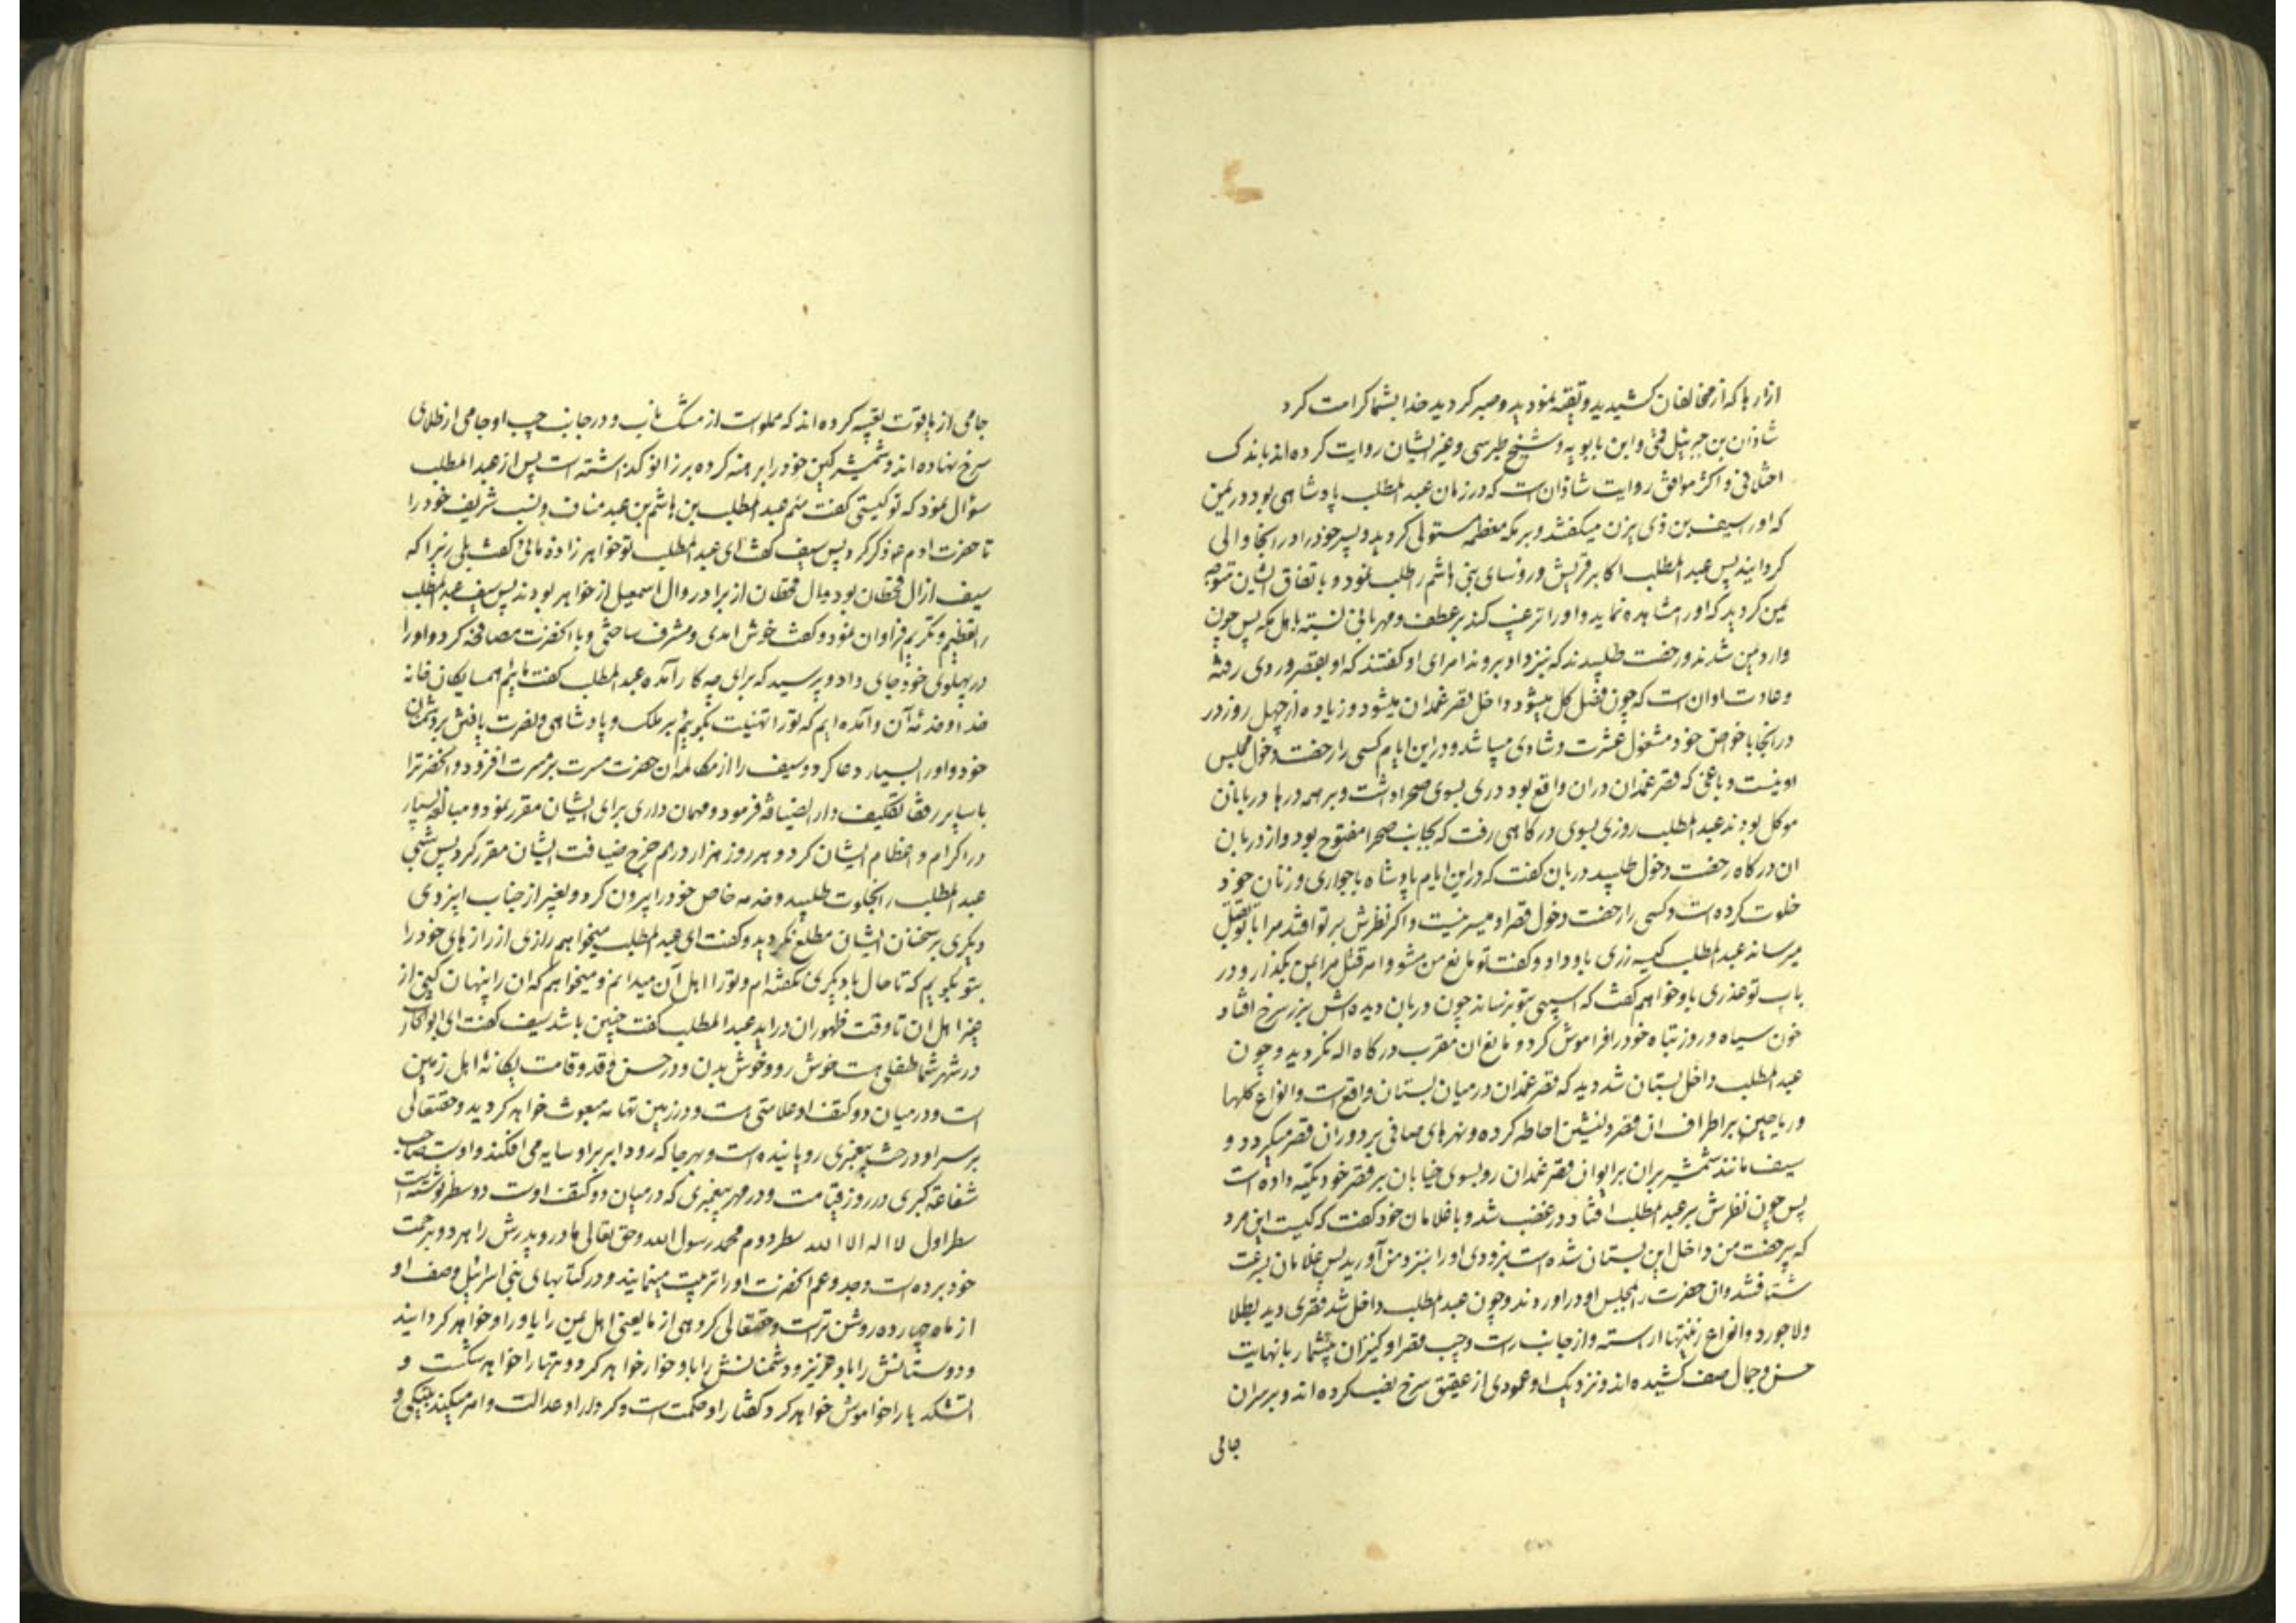 ازارها که از مخالفان کشیدید و تقیه نمودید و صبر کردید خدا بشما کرامت کرد
شاذان بن جبرئیل قمی و ابن بابویه و شیخ طبرسی و غیر ایشان روایت کرده اند باندک
اختلافی و اکثر موافق روایت شاذان است که در زمان عبد المطلب پادشاهی بود در یمن
که او را سیف بن ذی یزن میکفتند و بر مکه معظمه مستولی کردید و پسر خود را در انجا والی
کردانید پس عبد المطلب اکابر قریش و روسای بنی هاشم را طلب نمود و باتفاق ایشان متوجه
یمن کردید که او را مشاهده نماید و او را ترغیب کند بر عطف و مهربانی نسبة باهل مکه پس چون
وارد یمن شدند و رخصت طلبیدند که بنزد او بروند امرای او کفتند که او بقصر وردی رفته
و عادت او ان است که چون فصل کل میشود داخل قصر غمدان میشود و زیاده از چهل روز در
در انجا با خواص خود مشغول عشرت و شادی میباشد و در این ایام کسی را رخصت دخول مجلس
او نیست و باغی که قصر غمدان دران واقع بود دری بسوی صحرا داشت و بر همه درها دربانان
موکل بودند عبد المطلب روزی بسوی درکاهی رفت که بجانب صحرا مفتوح بود و از دربان
ان درکاه رخصت دخول طلبید دربان کفت که در این ایام پادشاه با جواری و زنان خود
خلوت کرده است و کسی را رخصت دخول قصر او میسر نیست و اکر نظرش بر تو افتد مرا با تو بقتل
میرساند عبد المطلب کیسه زری باو داد و کفت تو مانع من مشو و امر قتل مرا بمن بکذار و در
باب تو عذری باو خواهم کفت که اسیبی بتو نرساند چون دربان دیده اش بزر سرخ افتاد
خون سیاه و روز تباه خود را فراموش کرد و مانع ان مقرب درکاه اله نکردید و چون
عبد المطلب داخل بستان شد دید که قصر غمدان در میان بستان واقع است و انواع کلها
و ریاحین بر اطراف ان قصر دلنشین احاطه کرده و نهرهای صافی بر دوران قصر میکردد و
سیف مانند شمشیر بران بر ایوان قصر غمدان رو بسوی خیابان بر قصر خود تکیه داده است
پس چون نظرش بر عبد المطلب افتاد در غضب شد و با غلامان خود کفت که کیست این مرد
که بیرخصت من داخل این بستان شده است بزودی او را بنزد من آورید پس غلامان بسرعت
شتافتند وان حضرت را بمجلس او در اوردند و چون عبد المطلب داخل شد قصری دید بطلا
و لاجورد و انواع زینتها اراسته و از جانب راست و چپ قصر او کنیزان بیشمار با نهایت
حسن و جمال صف کشیده اند و نزدیک او عمودی از عقیق سرخ نصب کرده اند و بر سران
جامی
جامی از یاقوت تعبیه کرده اند که مملو است از مشک ناب و در جانب چپ او جامی از طلای
سرخ نهاده اند و شمشیر کین خود را برهنه کرده بر زانو کذاشته است پس از عبد المطلب
سؤال نمود که تو کیستی کفت منم عبد المطلب بن هاشم بن عبد مناف و نسب شریف خود را
تا حضرت ادم ع ذکر کرد پس سیف کفت ای عبد المطلب تو خواهرزاده مائی کفت بلی زیرا که
سیف از ال قحطان بود و ال قحطان از برادر و ال اسمعیل از خواهر بودند پس سیف عبد المطلب
را تعظیم و تکریم فراوان نمود و کفت خوش امدی و مشرف ساختی و با انحضرت مصافحه کرد و او را
در پهلوی خود جای داد و پرسید که برای چه کار آمده عبد المطلب کفت مائیم همسایکان خانه
خدا و خدمه آن و آمده ایم که تو را تهنیت بکوییم بر ملک و پادشاهی و نصرت یافتن بر دشمنان
خود و او را بسیار دعا کرد و سیف را از مکالمه ان حضرت مسرت بر مسرت افزود و انحضرترا
با سایر رفقا تکلیف دار الضیافه فرمود و مهمان داری برای ایشان مقرر نمود و مبالغه بسیار
در اکرام و اعظام ایشان کرد و هر روز هزار درهم خرج ضیافت ایشان مقرر کرد پس شبی
عبد المطلب را بخلوت طلبید و خدمه خاص خود را بیرون کرد و بغیر از جناب ایزدی
دیکری بر سخنان ایشان مطلع نکردید و کفت ای عبد المطلب میخواهم رازی از رازهای خود را
بتو بکویم که تا حال با دیکری نکفته ام و تو را اهل آن میدانم و میخواهم که ان را پنهان کنی از
غیر اهل ان تا وقت ظهور ان در اید عبد المطلب کفت چنین باشد سیف کفت ای ابو الحارث
در شهر شما طفلی هست خوش رو و خوش بدن و در حسن و قد و قامت یکانهٔ اهل زمین
است و در میان دو کتف او علامتی هست و در زمین تهامه مبعوث خواهد کردید و حقتعالی
بر سر او درخت پیغمبری رویانیده است و بهر جا که رود ابر بر او سایه می افکند و اوست صاحب
شفاعة کبری در روز قیامت و در مهر پیغمبری که در میان دو کتف اوست دو سطر نوشته است
سطر اول لا اله الا الله سطر دوم محمد رسول الله و حق تعالی مادر و پدرش را هر دو برحمت
خود برده است و جد و عم انحضرت او را تربیت مینمایند و در کتابهای بنی اسرائیل وصف او
از ماه چهارده روشن تر است و حقتعالی کروهی از ما یعنی اهل یمن را یاور او خواهد کردانید
و دوستانش را باو عزیز و دشمنانش را باو خوار خواهد کرد و بتها را خواهد شکست و
اتشکدها را خواموش خواهد کرد کفتار او حکمت است و کردار او عدالت و امر میکند بنیکی و